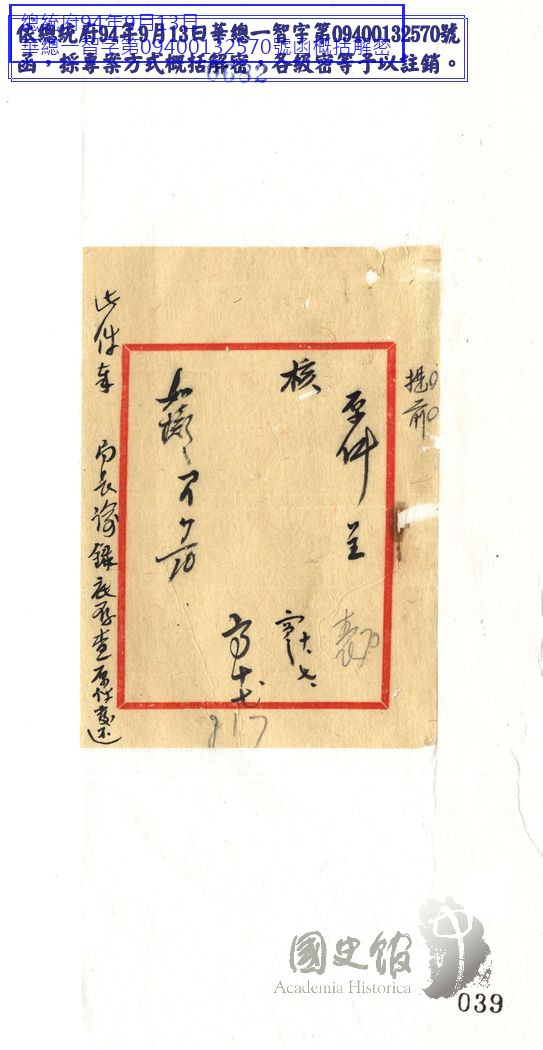 總統府94年9月13日
華總一智字第09400132570號函概括解密
依總統府94年9月13日華總一智字第09400132570號
函，採專案方式概括解密，各級密等予以註銷。
0632
提前
原件呈
核
如擬
此件奉 局長諭錄底存查原件發还
917
國史館
Academia Historica
039